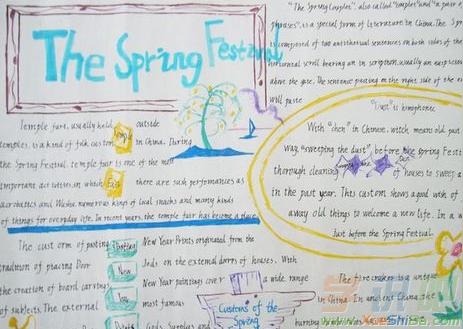 The Spring Festival
Temple fare, usually held outside
temples, is a kind of folk custom in China. During
the Spring Festival, temple fair is one of the most
important activities in which there are such performances as
acrobatics and Wushu, numerous kings of local snacks and many kinds
of things for everyday life. In recent years, the temple fair has become a place
Temple
Fair
The custom of pasting New Year Prints originated from the
tradition of placing Door Gods on the external doors of houses. With
the creation of board carvings, New Year paintings cover a wide range
of subjects. The external most famous
Door Gods, Surplus and
Pasting
New
Year
Prints
Customs of the
Spring
The "Spring Couplet", also called "couplet" and "a pair of
phrases", is a special form of literature in China. The Spring
is composed of two antithetical sentences on both sides of the
horizontal scroll bearing an inscription, usually an auspicious
above the gate. The sentence pasting on the right side of the
will paste
"Dust" is homophonic
With "chen" in Chinese, witch means old past
way, "sweeping the dust", before the Spring Festi
thorough cleaning of houses to sweep a
in the past year. This custom shows a good wish of
away old things to welcome a new life. In a w
Just before the Spring Festival.
The fire crackers is a unique
in China. In ancient China, the
burning
www.XueShiBa.com